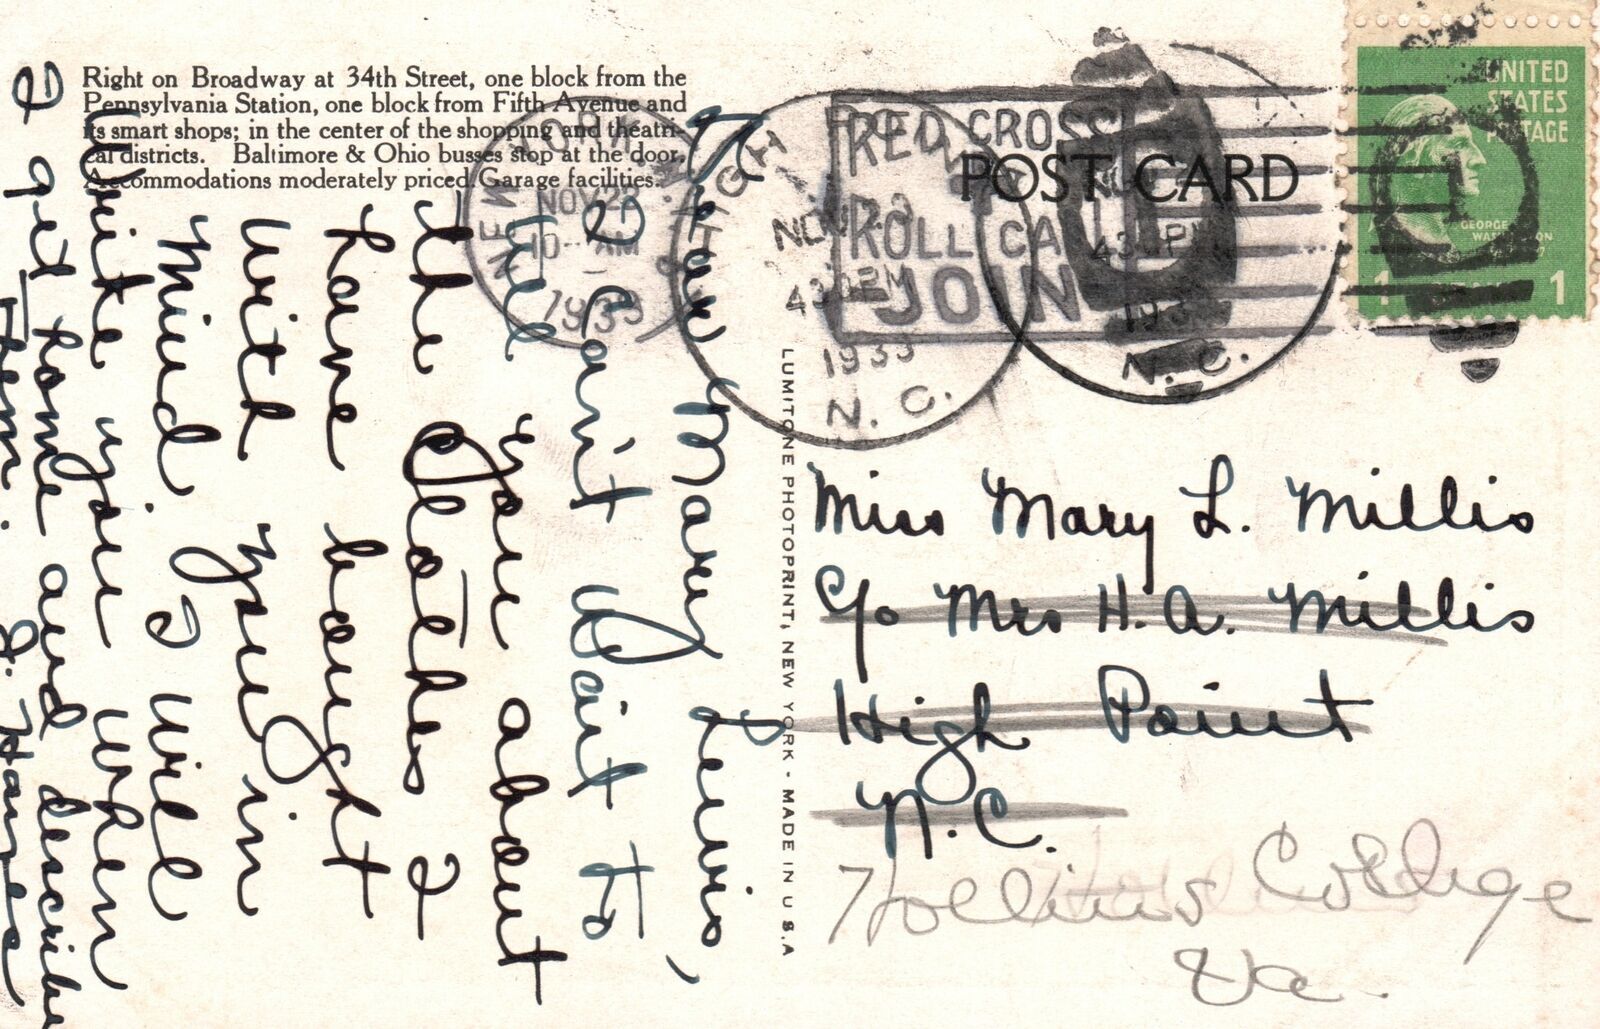 Right on Broadway at 34th Street, one block from the
Pennsylvania Station, one block from Fifth Avenue and
its smart shops; in the center of the shopping and theatri-
cal districts. Baltimore & Ohio busses stop at the door.
Accommodations moderately priced. Garage facilities.
Dear Mary Lewis,
I can't wait to
tell you about
the clothes I
have bought
with you in
mind. I will
write you when
I get home and describe
them. J. Hanes
POST CARD
NEW YORK, N.Y.
NOV 2
10 AM
1939
RED CROSS
ROLL CALL
JOIN
HIGH POINT
NOV
430 PM
1939
N. C.
NOV
430 PM
193
N. C.
UNITED
STATES
POSTAGE
GEORGE
WASHINGTON
1 1
LUMITONE PHOTOPRINT, NEW YORK - MADE IN U.S.A
Miss Mary L. Millis
c/o Mrs H. A. Millis
High Point
N.C.
Hollins College
Va.